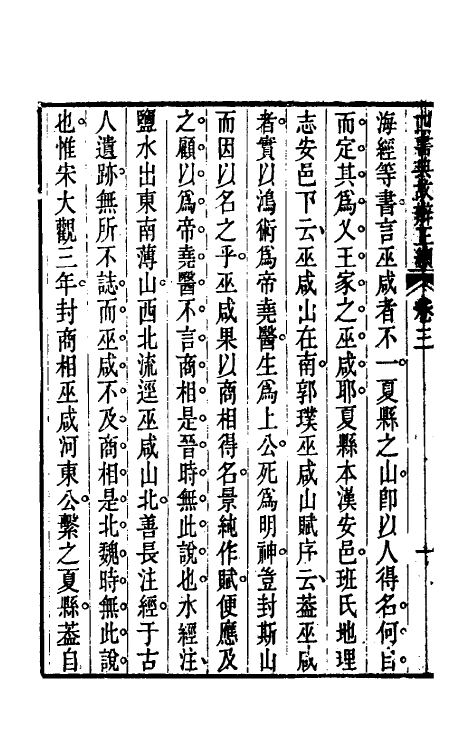 海經等書言巫咸者不一。夏縣之山。卽以人得名。何自
而定其爲乂王家之巫咸耶。夏縣本漢安邑。班氏地理
志安邑下云、巫咸山在南。郭璞巫咸山賦序云、蓋巫咸
者。實以鴻術爲帝堯醫。生爲上公。死爲明神。豈封斯山
而因以名之乎。巫咸果以商相得名。景純作賦。便應及
之。顧以爲帝堯醫。不言商相。是晉時無此說也。水經注、
鹽水出東南薄山。西北流逕巫咸山北。善長注經。于古
人遺跡。無所不誌。而巫咸不及商相。是北魏時無此說
也。惟宋大觀三年。封商相巫咸河東公。繫之夏縣。蓋自
四書典故辨正續 卷三 十